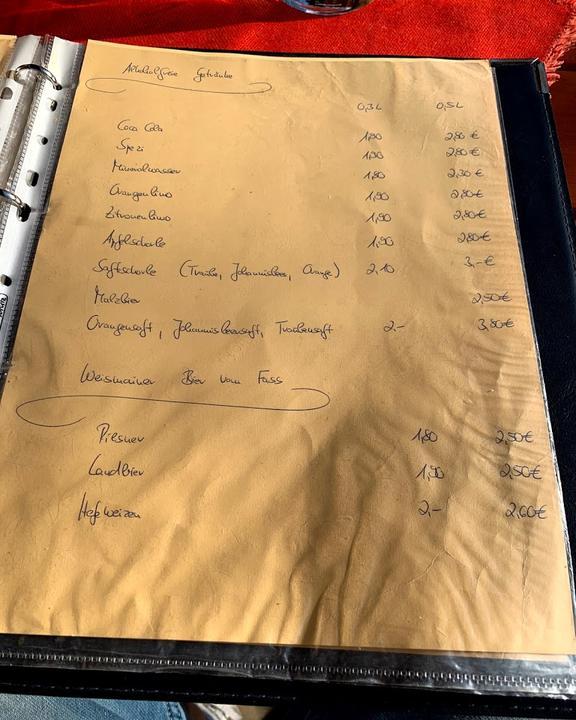 Alkoholfreie Getränke
0,3L 0,5L
Coca Cola 1,90 2,80 €
Spezi 1,90 2,80 €
Mineralwasser 1,80 2,30 €
Orangenlimo 1,90 2,80 €
Zitronenlimo 1,90 2,80 €
Apfelschorle 1,90 2,80 €
Saftschorle (Traube, Johannisbeer, Orange) 2,10 3,- €
Malzbier 2,50 €
Orangensaft, Johannisbeersaft, Traubensaft 2,- 3,80 €
Weismainer Bier vom Fass
Pilsner 1,80 2,50 €
Landbier 1,90 2,50 €
Hefeweizen 2,- 2,60 €